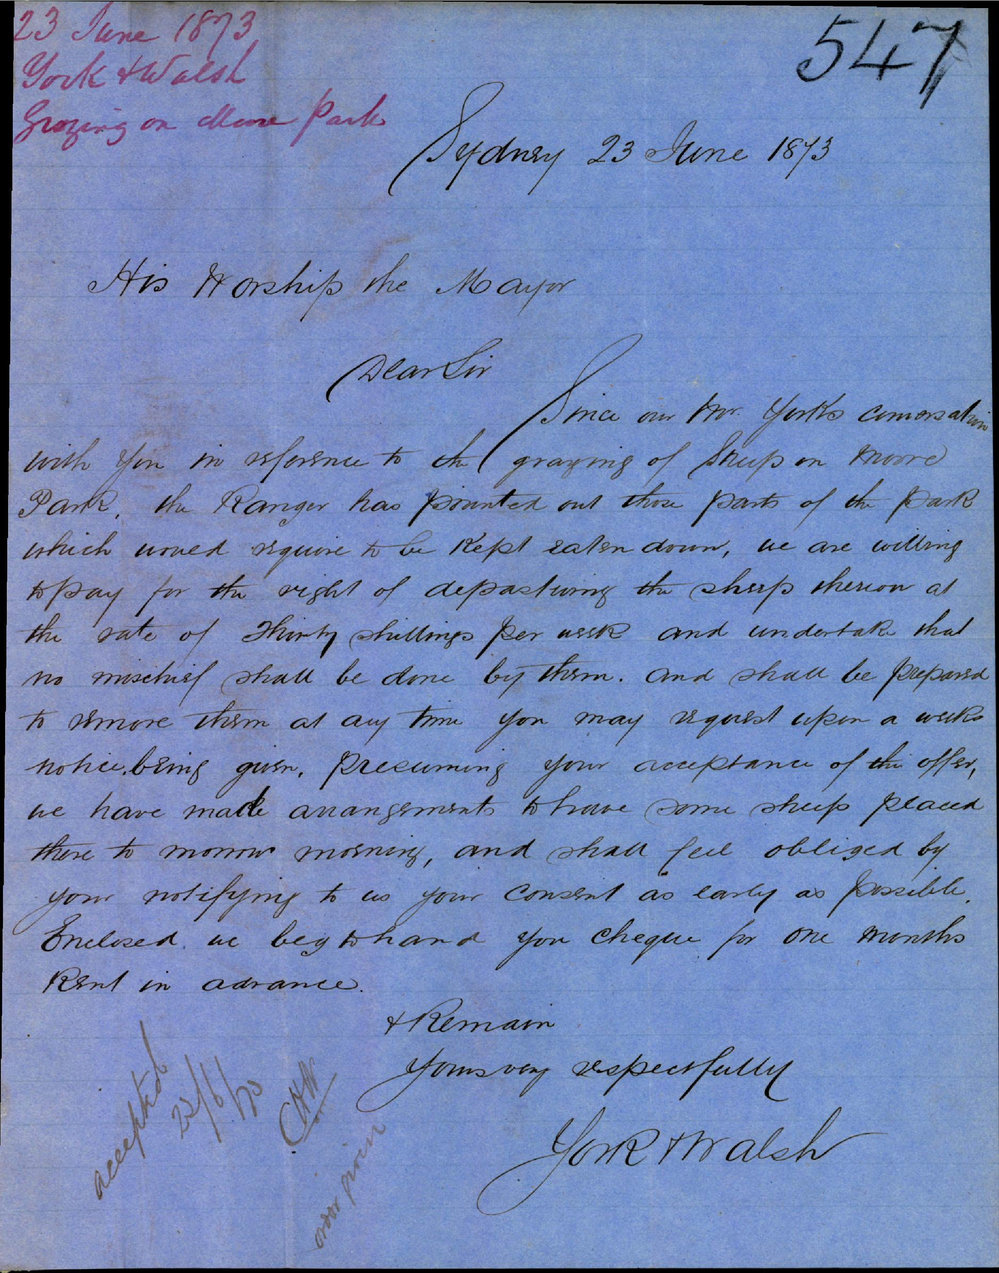 23 June 1873
York & Walsh
Grazing on Moore Park
547
Sydney 23 June 1873
His Worship the Mayor
Dear Sir
Since our Mr. York's conversation
with you in reference to the grazing of Sheep on Moore
Park, the Ranger has pointed out those parts of the park
which would require to be kept eaten down, we are willing
to pay for the right of depasturing the sheep thereon at
the rate of Thirty shillings per week and undertake that
no mischief shall be done by them. and shall be prepared
to remove them at any time you may request upon a weeks
notice being given, presuming your acceptance of the offer,
we have made arrangements to have some sheep placed
there to morrow morning, and shall feel obliged by
your notifying to us your consent as early as possible.
Enclosed we beg to hand you cheque for one months
Rent in advance.
& Remain
Yours very respectfully
York & Walsh
accepted
23/6/73
order given